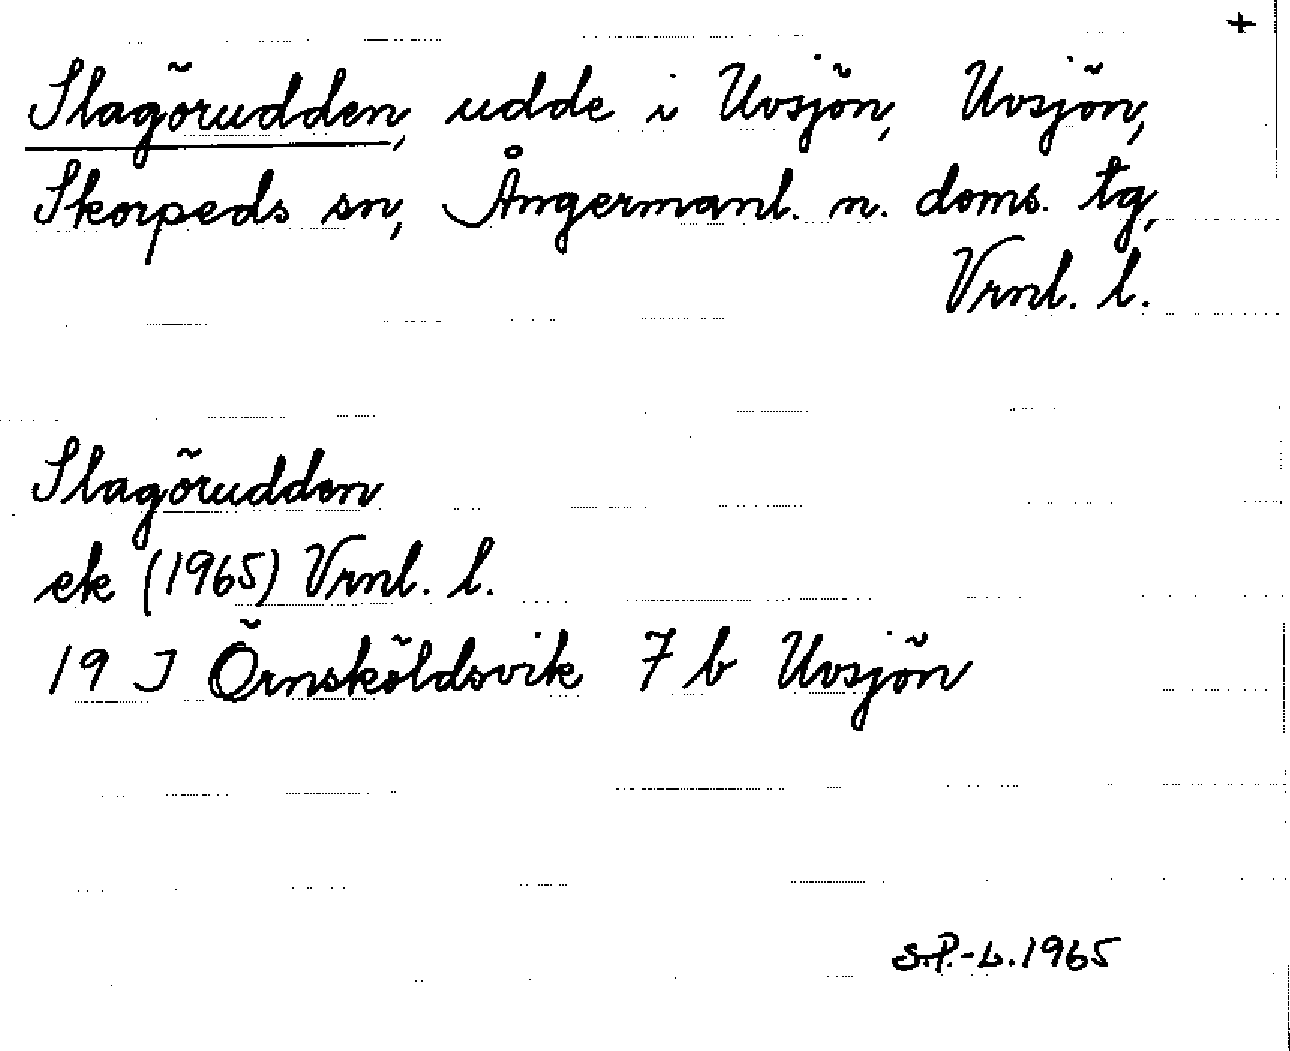 +
Slagörudden, udde i Uvsjön, Uvsjön,
Skorpeds sn, Ångermanl. n. doms. tg,
Vrnl. l.
Slagörudden
ek (1965) Vrnl. l.
19 J Örnsköldsvik 7 b Uvsjön
S.P.-L. 1965